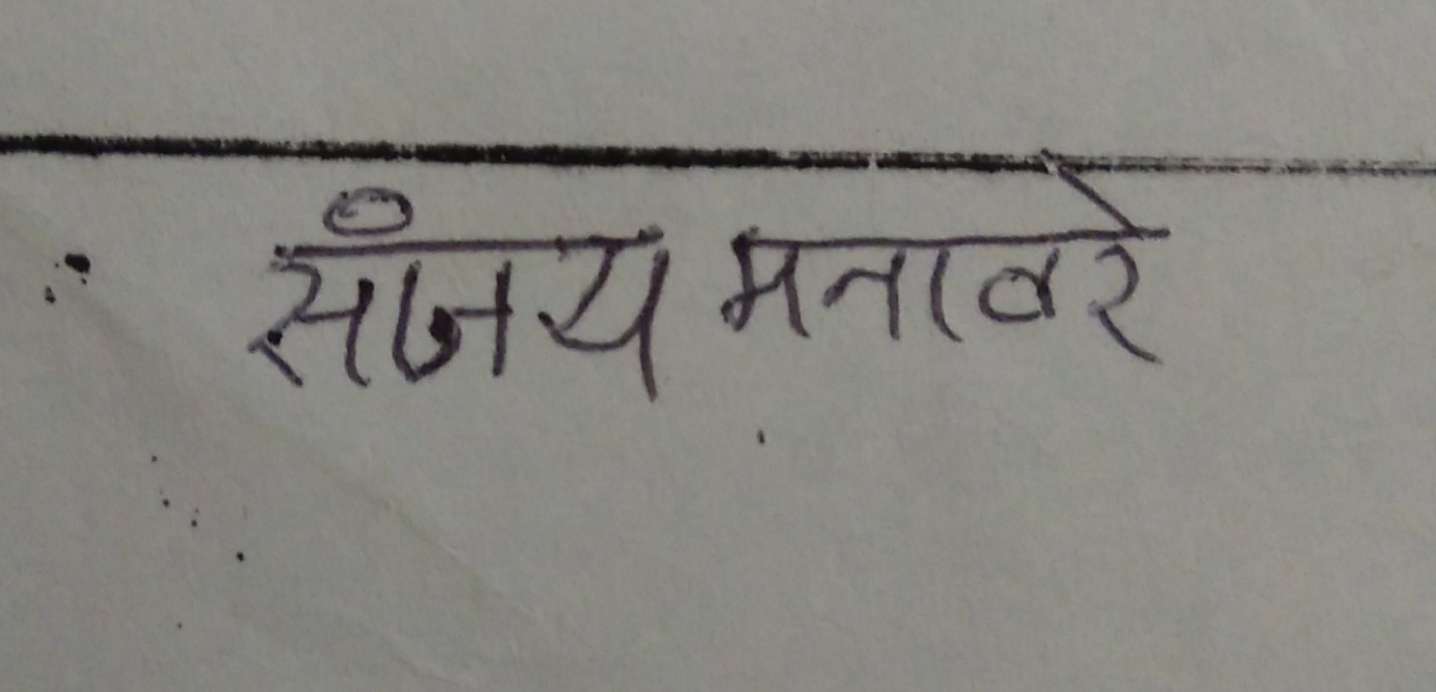 संजय मनावरे